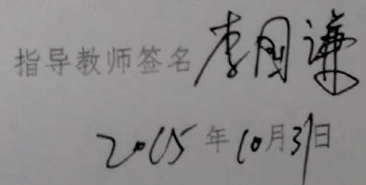 指导教师签名 李国谦
2015年10月31日